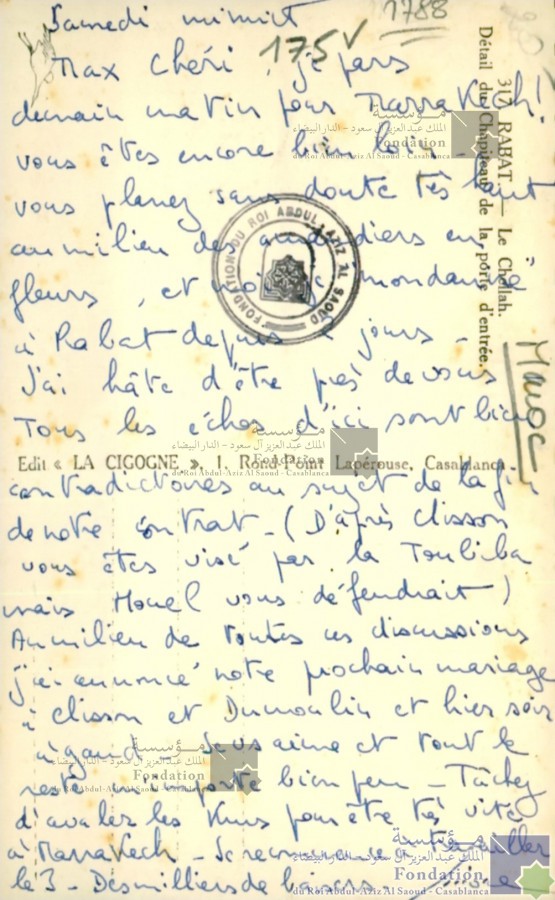 Samedi minuit
1788
175 ✓
Max Chéri, je pars
demain matin pour Marrakech!
vous êtes encore bien loin -
vous planez sans doute très haut
au milieu des amandiers en
fleurs, et moi je mondanise
à Rabat depuis jours -
J'ai hâte d'être près de vous
Tous les échos d'ici sont bien
contradictoires au sujet de la fin
de notre contrat - (D'après Clisson
vous êtes visé par la
mais vous défendrait)
Au milieu de toutes ces discussions
j'ai annoncé notre prochain mariage
à Clisson et Dumoulin et hier soir
à - Je vous aime et tout le
reste importe bien peu - Tâchez
d'avaler les Kms pour être très vite
à Marrakech - Je recommence à travailler
le 3 - Des milliers de
317 RABAT — Le Chellah.
Détail du Chapiteau de la porte d'entrée.
Maroc
Edit « LA CIGOGNE », 1, Rond-Point Lapérouse, Casablanca.
FONDATION DU ROI ABDUL AZIZ AL SAOUD
مؤسسة
الملك عبد العزيز آل سعود - الدار البيضاء
Fondation
du Roi Abdul-Aziz Al Saoud - Casablanca
مؤسسة
الملك عبد العزيز آل سعود - الدار البيضاء
Fondation
du Roi Abdul-Aziz Al Saoud - Casablanca
مؤسسة
الملك عبد العزيز آل سعود - الدار البيضاء
Fondation
du Roi Abdul-Aziz Al Saoud - Casablanca
مؤسسة
الملك عبد العزيز آل سعود - الدار البيضاء
Fondation
du Roi Abdul-Aziz Al Saoud - Casablanca